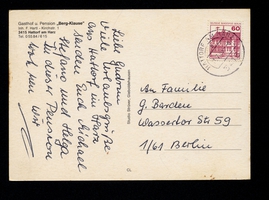 Gasthof u. Pension „Berg-Klause"
3415 Hattorf am Harz
Liebe Gudrun
viele Urlaubsgrüße
aus Hattorf im Harz
senden Euch Michael
Stefano und Helga
In dieser Pension
wohnen wir
80
An Familie
G. Barden
Wasserdor Str 59
1/61 Berlin